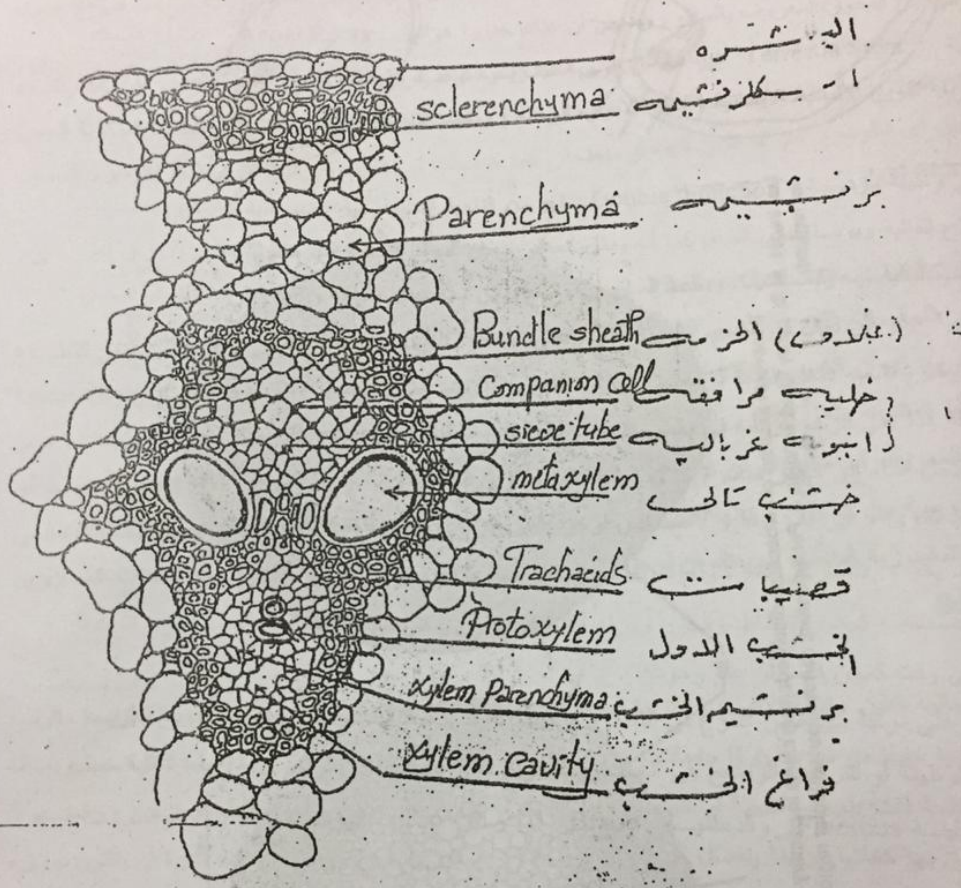 البشره
sclerenchyma سكلرنشيمه
Parenchyma برنشيمه
Bundle sheath (غلاف) الحزمه
Companion cell خليه مرافقه
sieve tube انبوبه غرباليه
metaxylem خشب تالي
Trachacids قصيبات
Protoxylem الخشب الاول
xylem parenchyma برنشيمه الخشب
xylem cavity فراغ الخشب